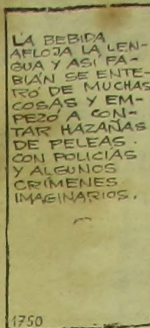 LA BEBIDA
AFLOJA LA LEN-
GUA Y ASÍ FA-
BIÁN SE ENTE-
RÓ DE MUCHAS
COSAS Y EM-
PEZÓ A CON-
TAR HAZAÑAS
DE PELEAS.
CON POLICÍAS
Y ALGUNOS
CRÍMENES
IMAGINARIOS.
1750